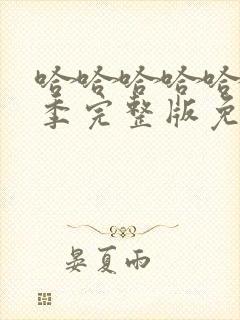 哈哈哈哈哈
季完整版免
晏夏雨